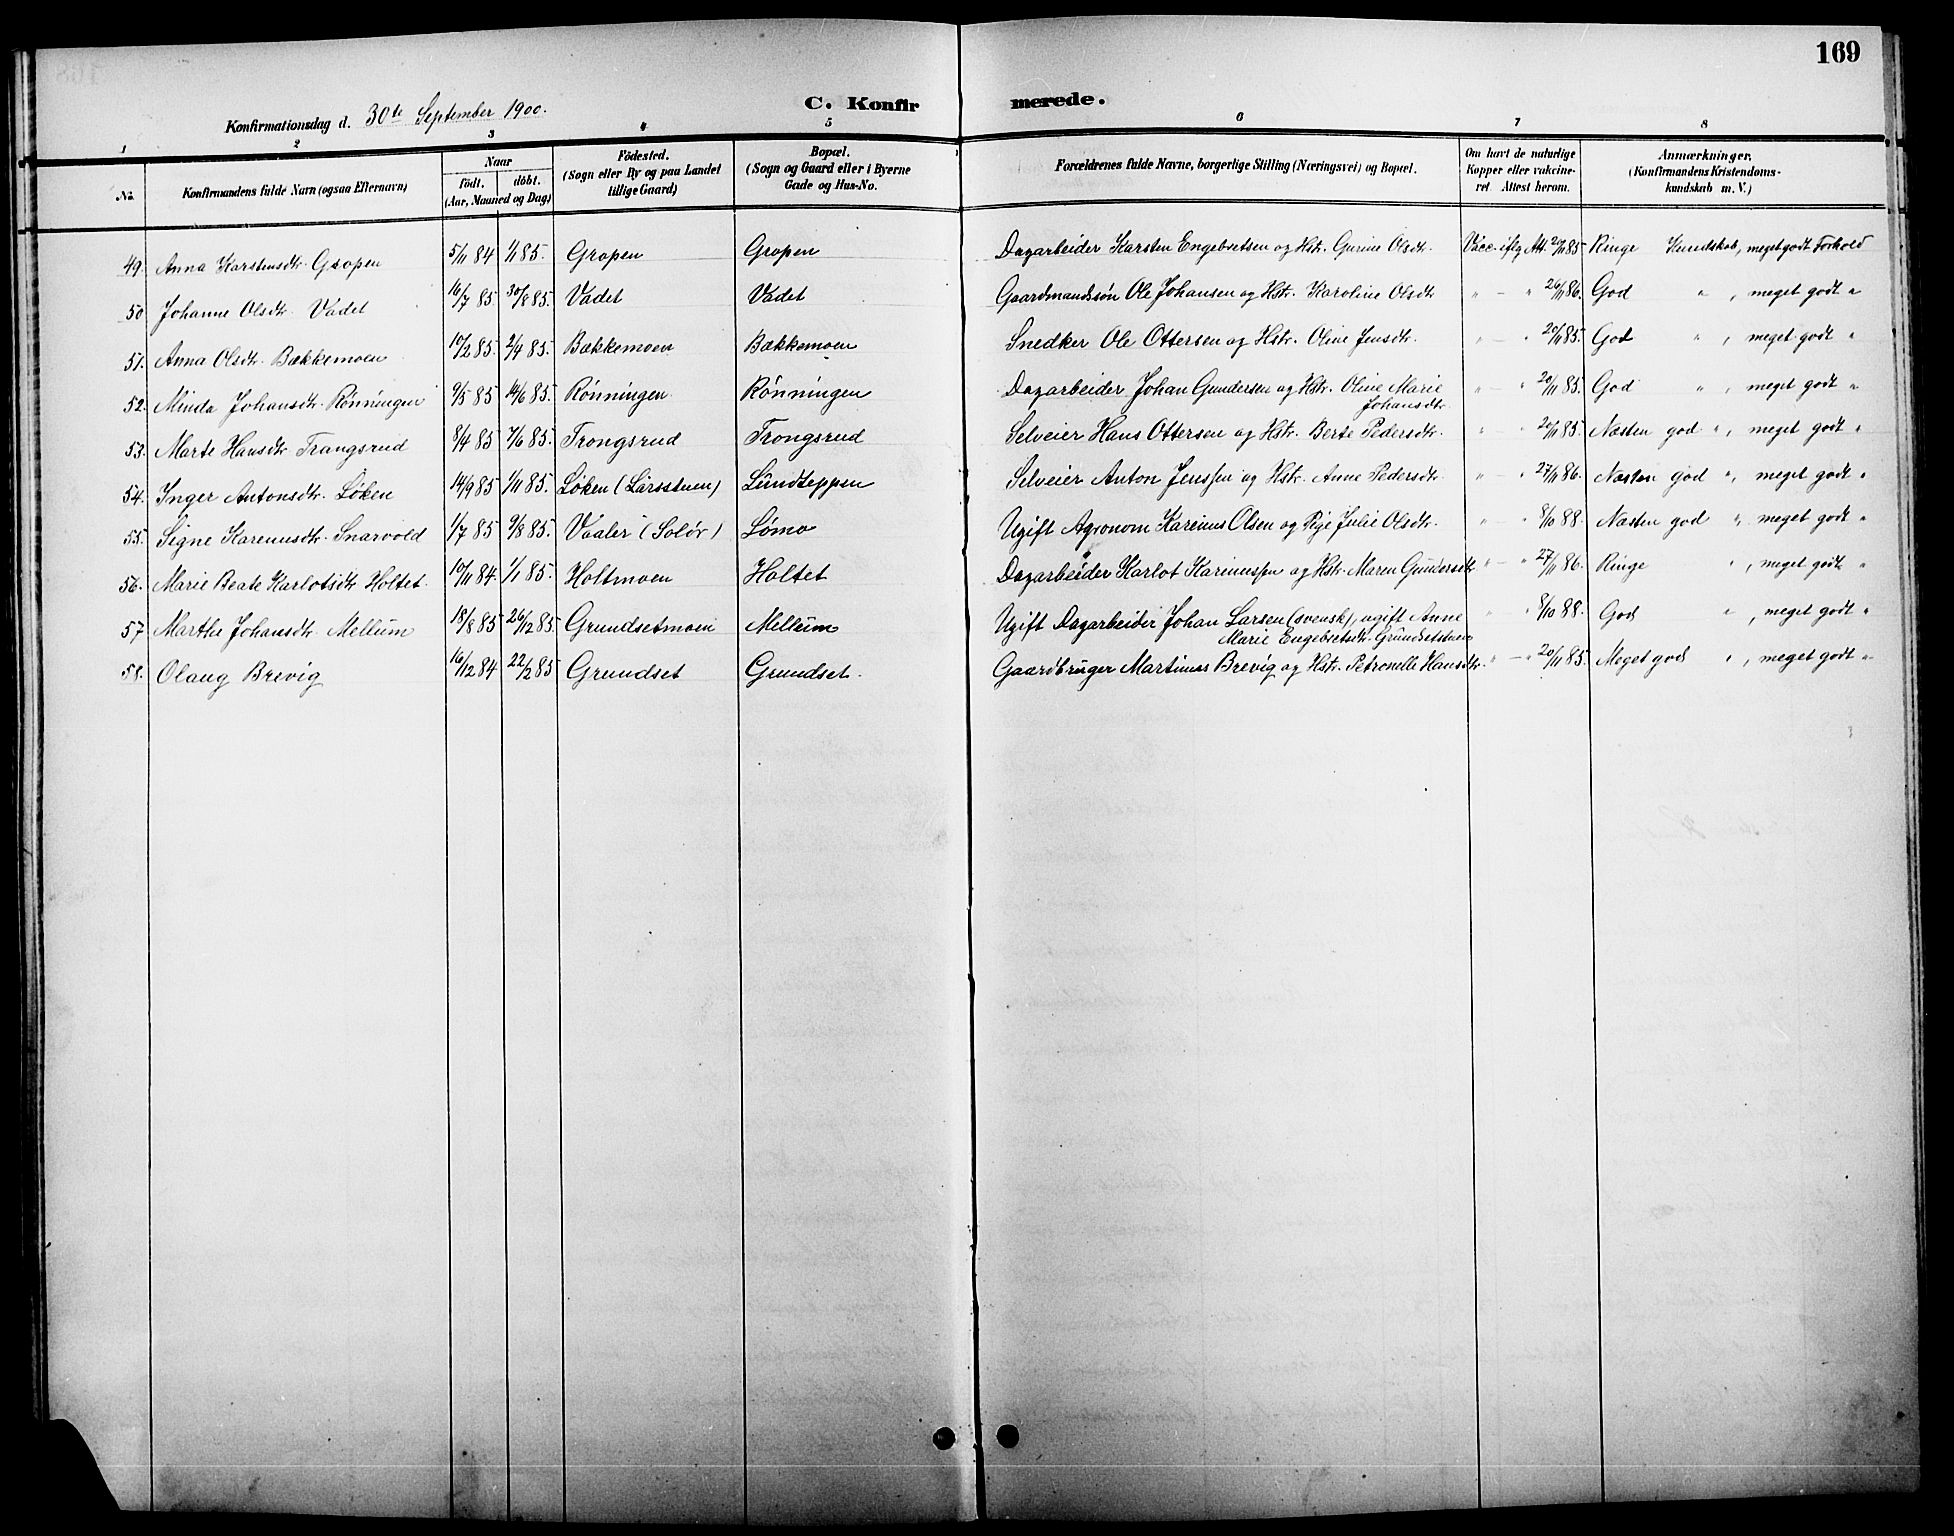 169
Konfirmationsdag d. 30te September 1900.
C. Konfir merede.
1 2 3 4 5 6 7 8
No. Konfirmandens fulde Navn (ogsaa Efternavn) Naar födt. döbt. (Aar, Maaned og Dag) Födested. (Sogn eller By og paa Landet tillige Gaard) Bopæl. (Sogn og Gaard eller i Byerne Gade og Hus-No. Forældrenes fulde Navne, borgerlige Stilling (Næringsvei) og Bopæl. Om havt de naturlige Kopper eller vakcineret. Attest herom. Anmærkninger. (Konfirmandens Kristendomskundskab m. V.)
49. Anna Karstensdtr. Gropen 5/11 84 1/1 85. Gropen Gropen Dagarbeider Karsten Engebretsen og Hstr. Gurine Olsdtr. Vacc. iflg Att. 20/11 85 Ringe Kundskab, meget godt Forhold
50 Johanne Olsdtr. Vadet 16/7 85. 30/8 85. Vadet Vadet Gaardmandssøn Ole Johansen og Hstr. Karoline Olsdtr " — " 26/11 86. God " , meget godt "
51. Anna Olsdtr. Bækkemoen 10/2 85. 2/4 85. Bækkemoen Bækkemoen Snedker Ole Ottersen og Hstr. Oline Jensdtr. " — " 20/11 85. God " , meget godt "
52. Minda Johansdtr. Rönningen 9/5 85 14/6 85. Rönningen Rönningen Dagarbeider Johan Gundersen og Hstr. Oline Marie " — " 20/11 85. God " , meget godt "
Johansdtr.
53. Marte Hansdtr Trangsrud 8/4 85 7/6 85. Trongsrud Trongsrud Selveier Hans Ottersen og Hstr. Berte Pedersdtr. " " 20/11 85. Næsten god " , meget godt "
54. Inger Antonsdtr. Løken 14/9 85 1/11 85. Løken (Larsstuen) Lundteppen Selveier Anton Jenssen og Hstr. Anne Pedersdtr. " — " 27/11 86. Næsten god " , meget godt "
55. Signe Karenusdtr. Snarvold 1/7 85 9/8 85. Vaaler (Solör) Lömo Ugift Agronom Karenus Olsen og Pige Julie Olsdtr. " — " 8/10 88. Næsten god " , meget godt "
56. Marie Beate Karlotsdtr Holtet. 10/11 84. 1/1 85. Holtmoen Holtet Dagarbeider Karlot Karinussen og Hstr. Maren Gundersdtr " — " 27/11 86. Ringe " , meget godt "
57 Marthe Johansdtr. Mellum 18/8 85 26/12 85. Grundsetmoen Mellum Ugift Dagarbeider Johan Larsen (svensk), ugift Anne " " 8/10 88. God " , meget godt "
Marie Engebretsdtr. Grundsetstuen
58. Olaug Brevig 16/12 84 22/2 85 Grundset Grundset. Gaardbruger Martinus Brevig og Hstr. Petronelle Hansdtr. " — " 20/11 85. Meget god " , meget godt "